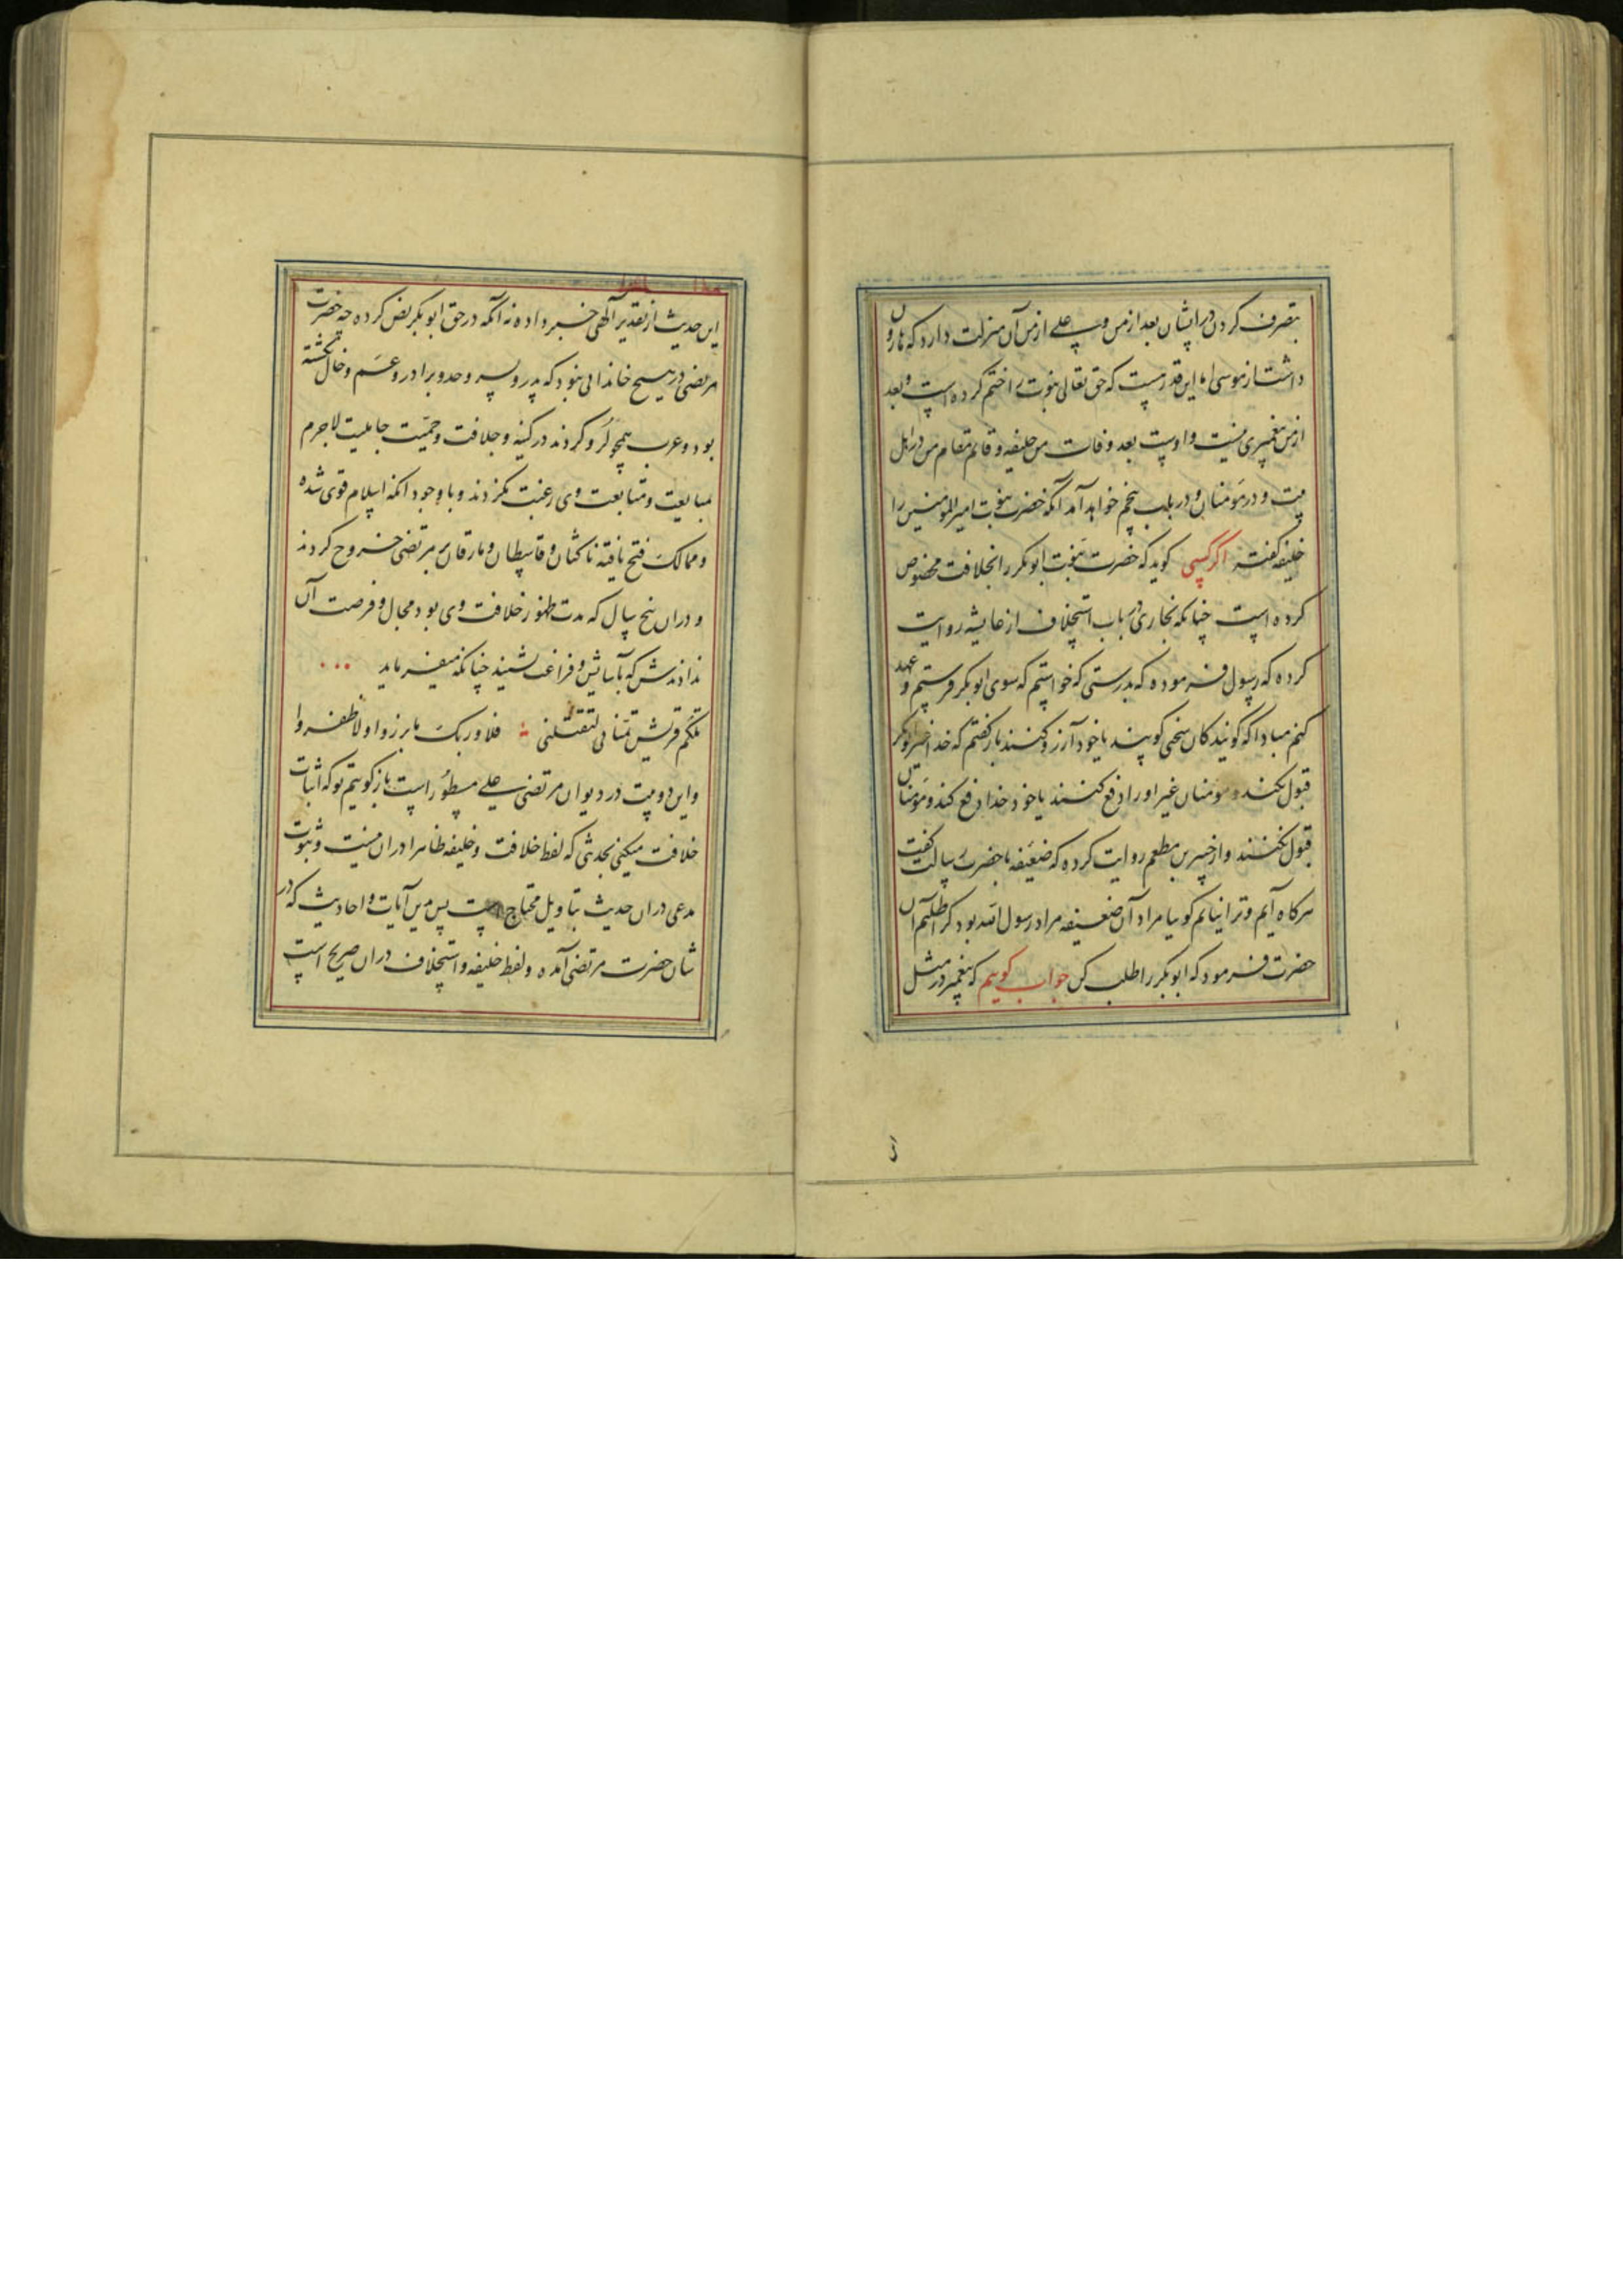 بتصرف کردن در ایشان بعد از من و علی از من آن منزلت دارد که هارون
داشت از موسی اما این قدر هست که حق تعالی نبوت را ختم کرده است و بعد
از من پیغمبری نیست و اوست بعد وفات من خلیفه و قائم مقام من در اهل
بیت و در مؤمنان و در باب پنجم خواهد آمد آنکه حضرت نبوت امیر المومنین را
خلیفه گفته اگر کسی کوید که حضرت نبوت ابوبکر را بخلافت مخصوص
کرده است چنانکه بخاری در باب استخلاف از عایشه روایت
کرده که رسول فرموده که بدرستی که خواستم که سوی ابوبکر فرستم و عهد
کنم مبادا که کویندکان سخنی کویند یا خود آرزو کنند باز کفتم که خدا
قبول نکند و مؤمنان غیر او را دفع کنند یا خود خدا دفع کند و مؤمنان
قبول نکنند و از جبیر بن مطعم روایت کرده که ضعیفه با حضرت رسالت کفت
هرکاه آیم و ترا نیابم کوییا مراد آن ضعیفه مراد رسول الله بود که آن
حضرت فرمود که ابوبکر را طلب کن جواب کوییم که پیغمبر در مثل
این حدیث از تقدیر آلهی خبر داده نه آنکه در حق ابوبکر نص کرده چه حضرت
مرتضی در هیچ خاندانی نبود که پدر و پسر و جد و برادر و عم و خال نکشته
بود و عرب همچو کرو کردند در کینه و جلافت و حمیت جاهلیت لاجرم
بمبایعت و متابعت وی رغبت نکردند و با وجود انکه اسلام قوی شده
و ممالک فتح یافته ناکثان و قاسطان و مارقان بر مرتضی خروج کردند
و دران پنج سال که مدت ظهور خلافت وی بود مجال و فرصت آن
ندادندش که بآسایش و فراغت نشیند چنانکه میفرماید
تلکم قریش تمنانی لتقتلنی فلا وربک ما برزوا ولا ظفروا
واین دو بیت در دیوان مرتضی علی مسطور است باز کوییم تو که اثبات
خلافت میکنی بحدیثی که لفظ خلافت و خلیفه ظاهرا دران نیست و ثبوت
مدعی دران حدیث بتاویل محتاج است پس ببین آیات و احادیث که در
شان حضرت مرتضی آمده و لفظ خلیفه و استخلاف دران صریح است